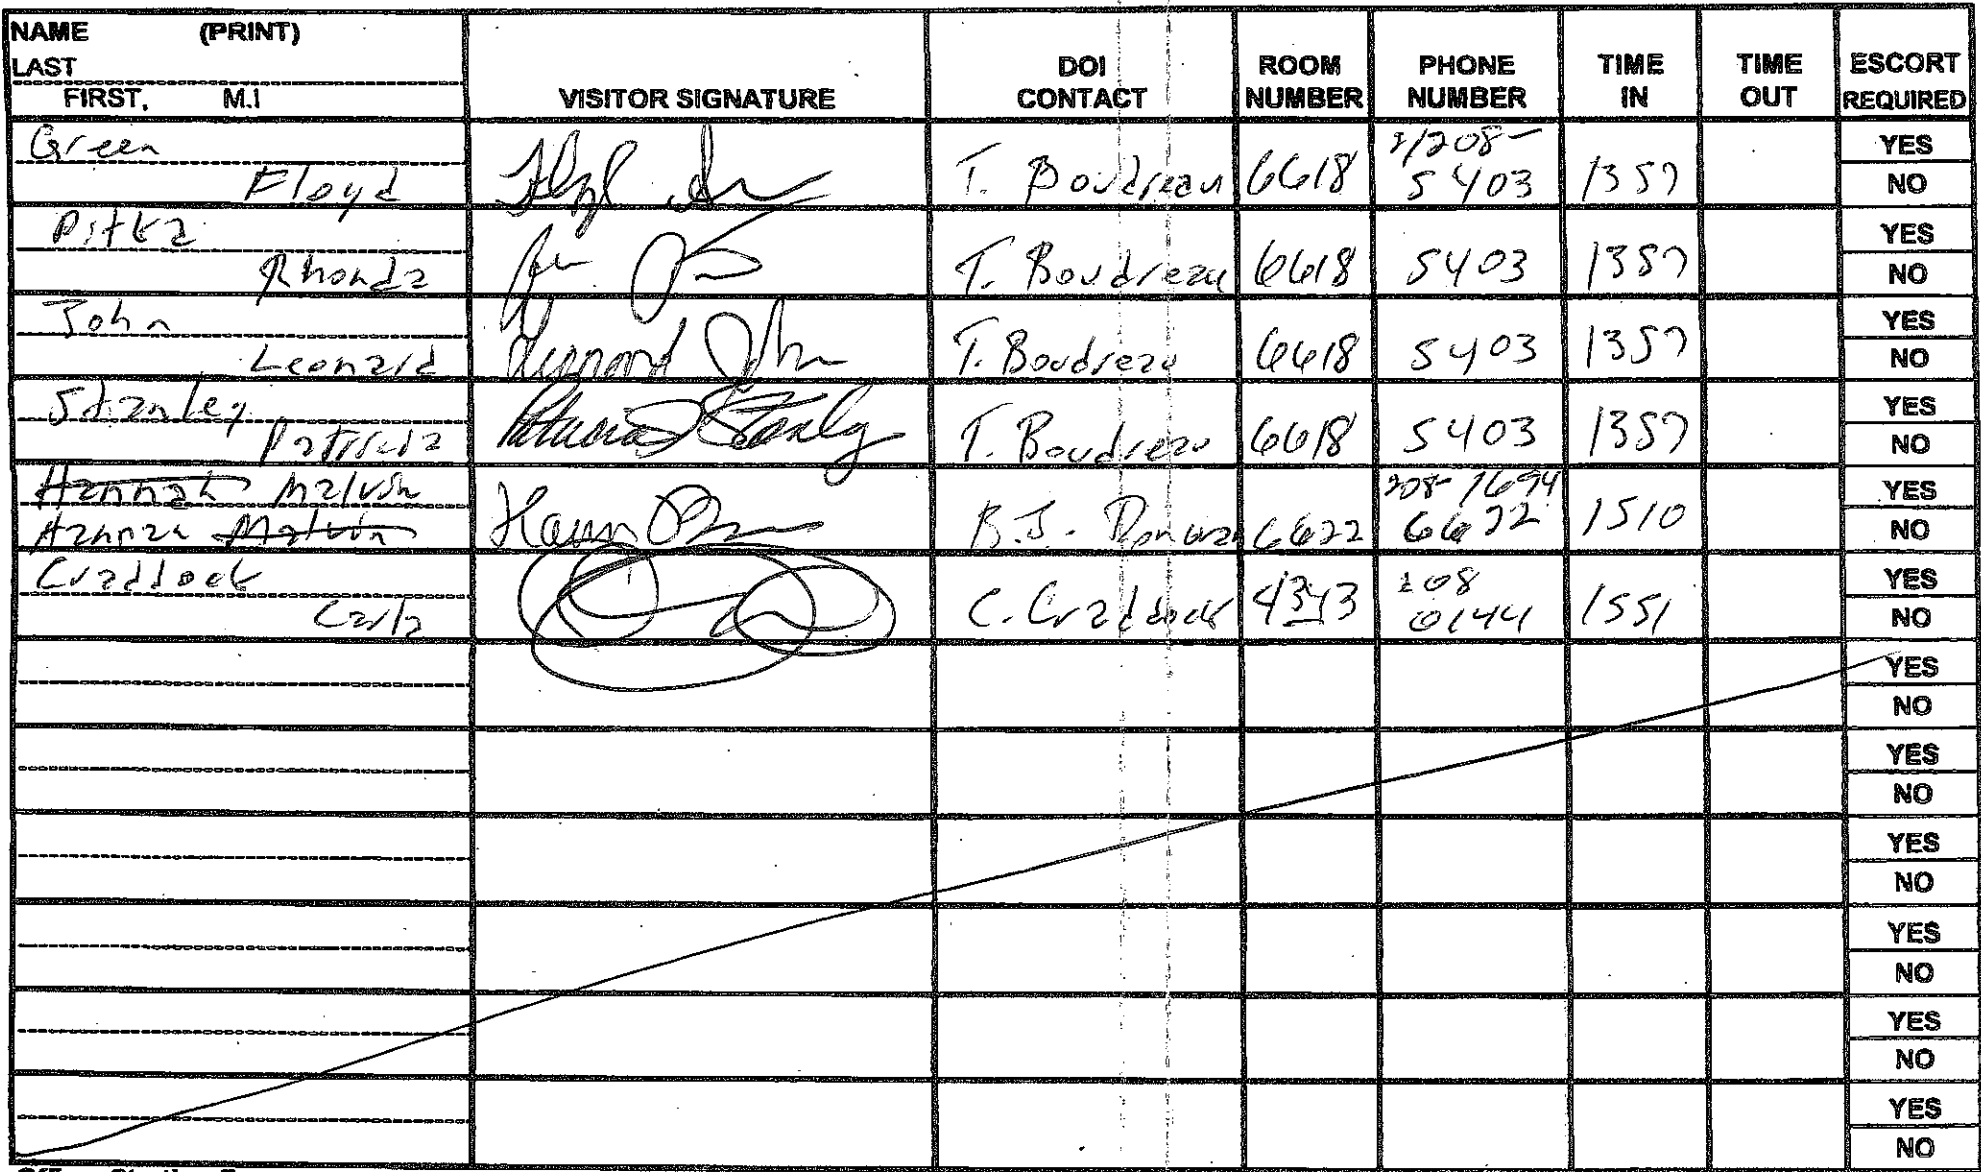 NAME (PRINT)
LAST
FIRST, M.I
VISITOR SIGNATURE
DOI CONTACT
ROOM NUMBER
PHONE NUMBER
TIME IN
TIME OUT
ESCORT REQUIRED
Green
Floyd
T. Boudreau 6618 208-5403 1357 YES NO
Pitka
Rhonda
T. Boudreau 6618 5403 1357 YES NO
John
Leonard
Leonard John
T. Boudreau 6618 5403 1357 YES NO
Stanley
Patricia
Patricia Stanley
T. Boudreau 6618 5403 1357 YES NO
Hannah Malvin
Hannah Malvin
B.J. 6622 208-1694 6622 1510 YES NO
Craddock
Carla
C. Craddock 4343 208 0144 1551 YES NO
YES
NO
YES
NO
YES
NO
YES
NO
YES
NO
YES
NO